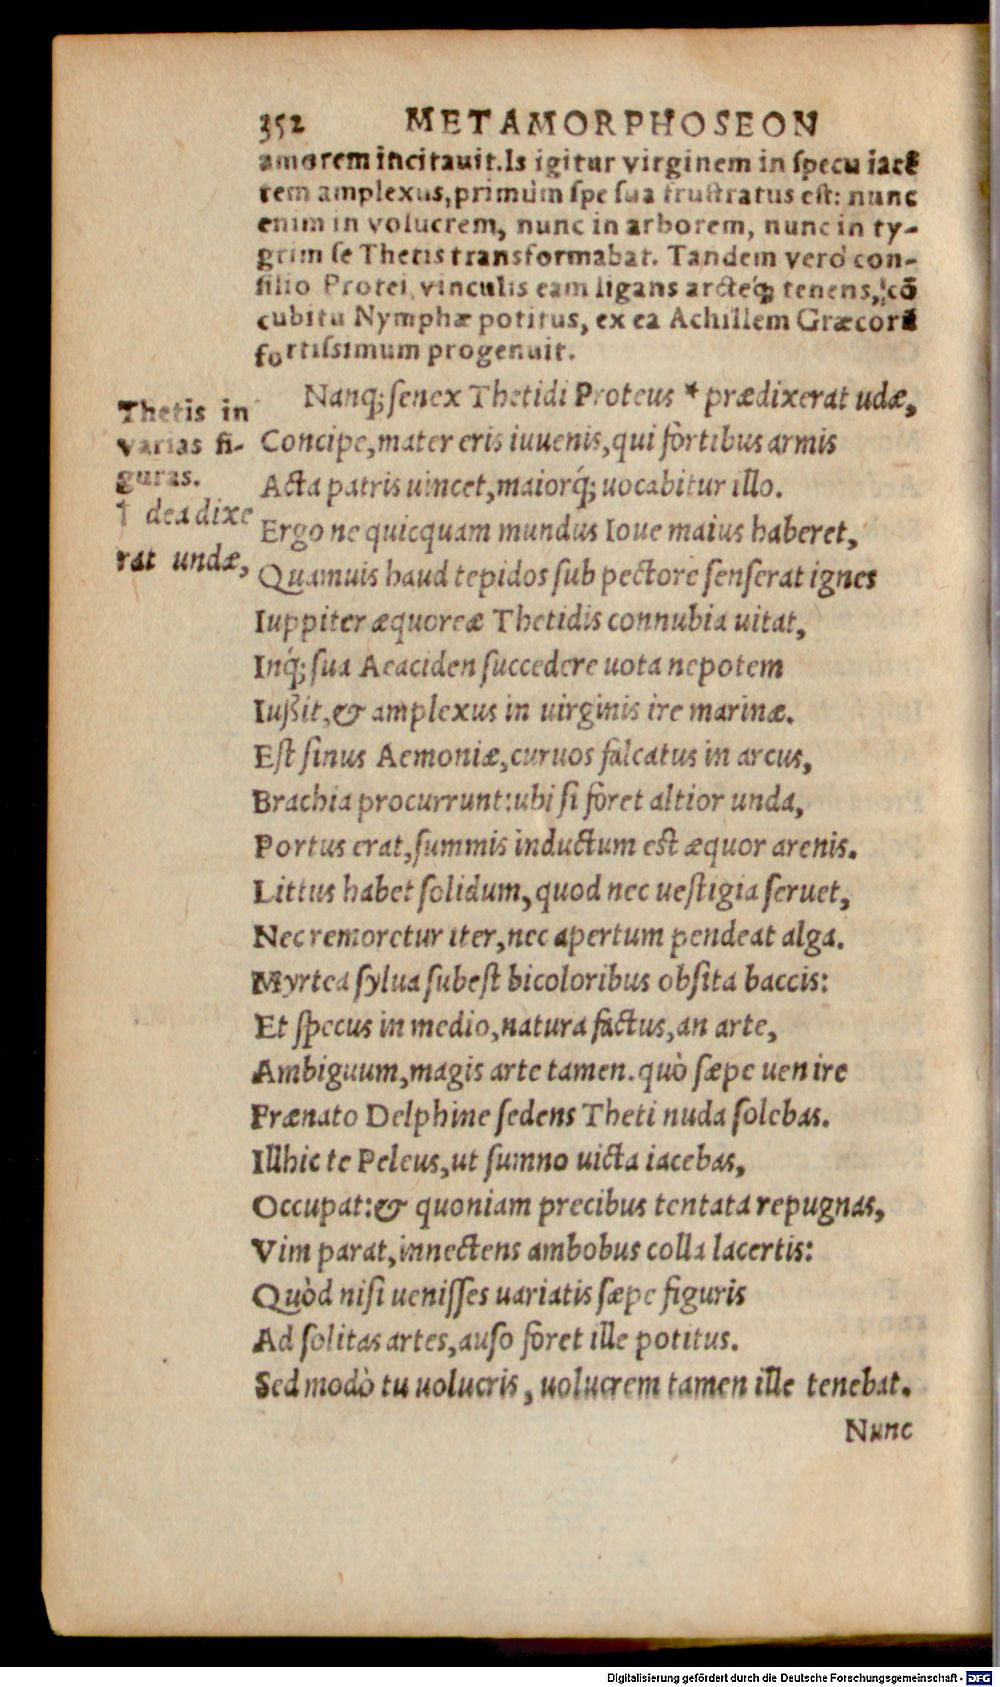 352 METAMORPHOSEON
amorem incitauit. Is igitur virginem in specu iacē
tem amplexus, primùm spe sua frustratus est: nunc
enim in volucrem, nunc in arborem, nunc in ty-
grim se Thetis transformabat. Tandem verò con-
silio Protei vinculis eam ligans arcteq́; tenens, cō
cubitu Nymphæ potitus, ex ea Achillem Græcorū
fortissimum progenuit.
Nanq; senex Thetidi Proteus * prædixerat udæ,
Thetis in
varias fi-
guras.
† dea dixe
rat undæ,
Concipe, mater eris iuuenis, qui fortibus armis
Acta patris uincet, maiorq́; uocabitur illo.
Ergo ne quicquam mundus Ioue maius haberet,
Quamuis haud tepidos sub pectore senserat ignes
Iuppiter æquoreæ Thetidis connubia uitat,
Inq́; sua Aeaciden succedere uota nepotem
Iußit, & amplexus in uirginis ire marinæ.
Est sinus Aemoniæ, curuos falcatus in arcus,
Brachia procurrunt: ubi si foret altior unda,
Portus erat, summis inductum est æquor arenis.
Littus habet solidum, quod nec uestigia seruet,
Nec remoretur iter, nec apertum pendeat alga.
Myrtea sylua subest bicoloribus obsita baccis:
Et specus in medio, natura factus, an arte,
Ambiguum, magis arte tamen. quò sæpe uenire
Frænato Delphine sedens Theti nuda solebas.
Illhic te Peleus, ut sumno uicta iacebas,
Occupat: & quoniam precibus tentata repugnas,
Vim parat, innectens ambobus colla lacertis:
Quòd nisi uenisses uariatis sæpe figuris
Ad solitas artes, auso foret ille potitus.
Sed modò tu uolucris, uolucrem tamen ille tenebat.
Nunc
Digitalisierung gefördert durch die Deutsche Forschungsgemeinschaft - DFG